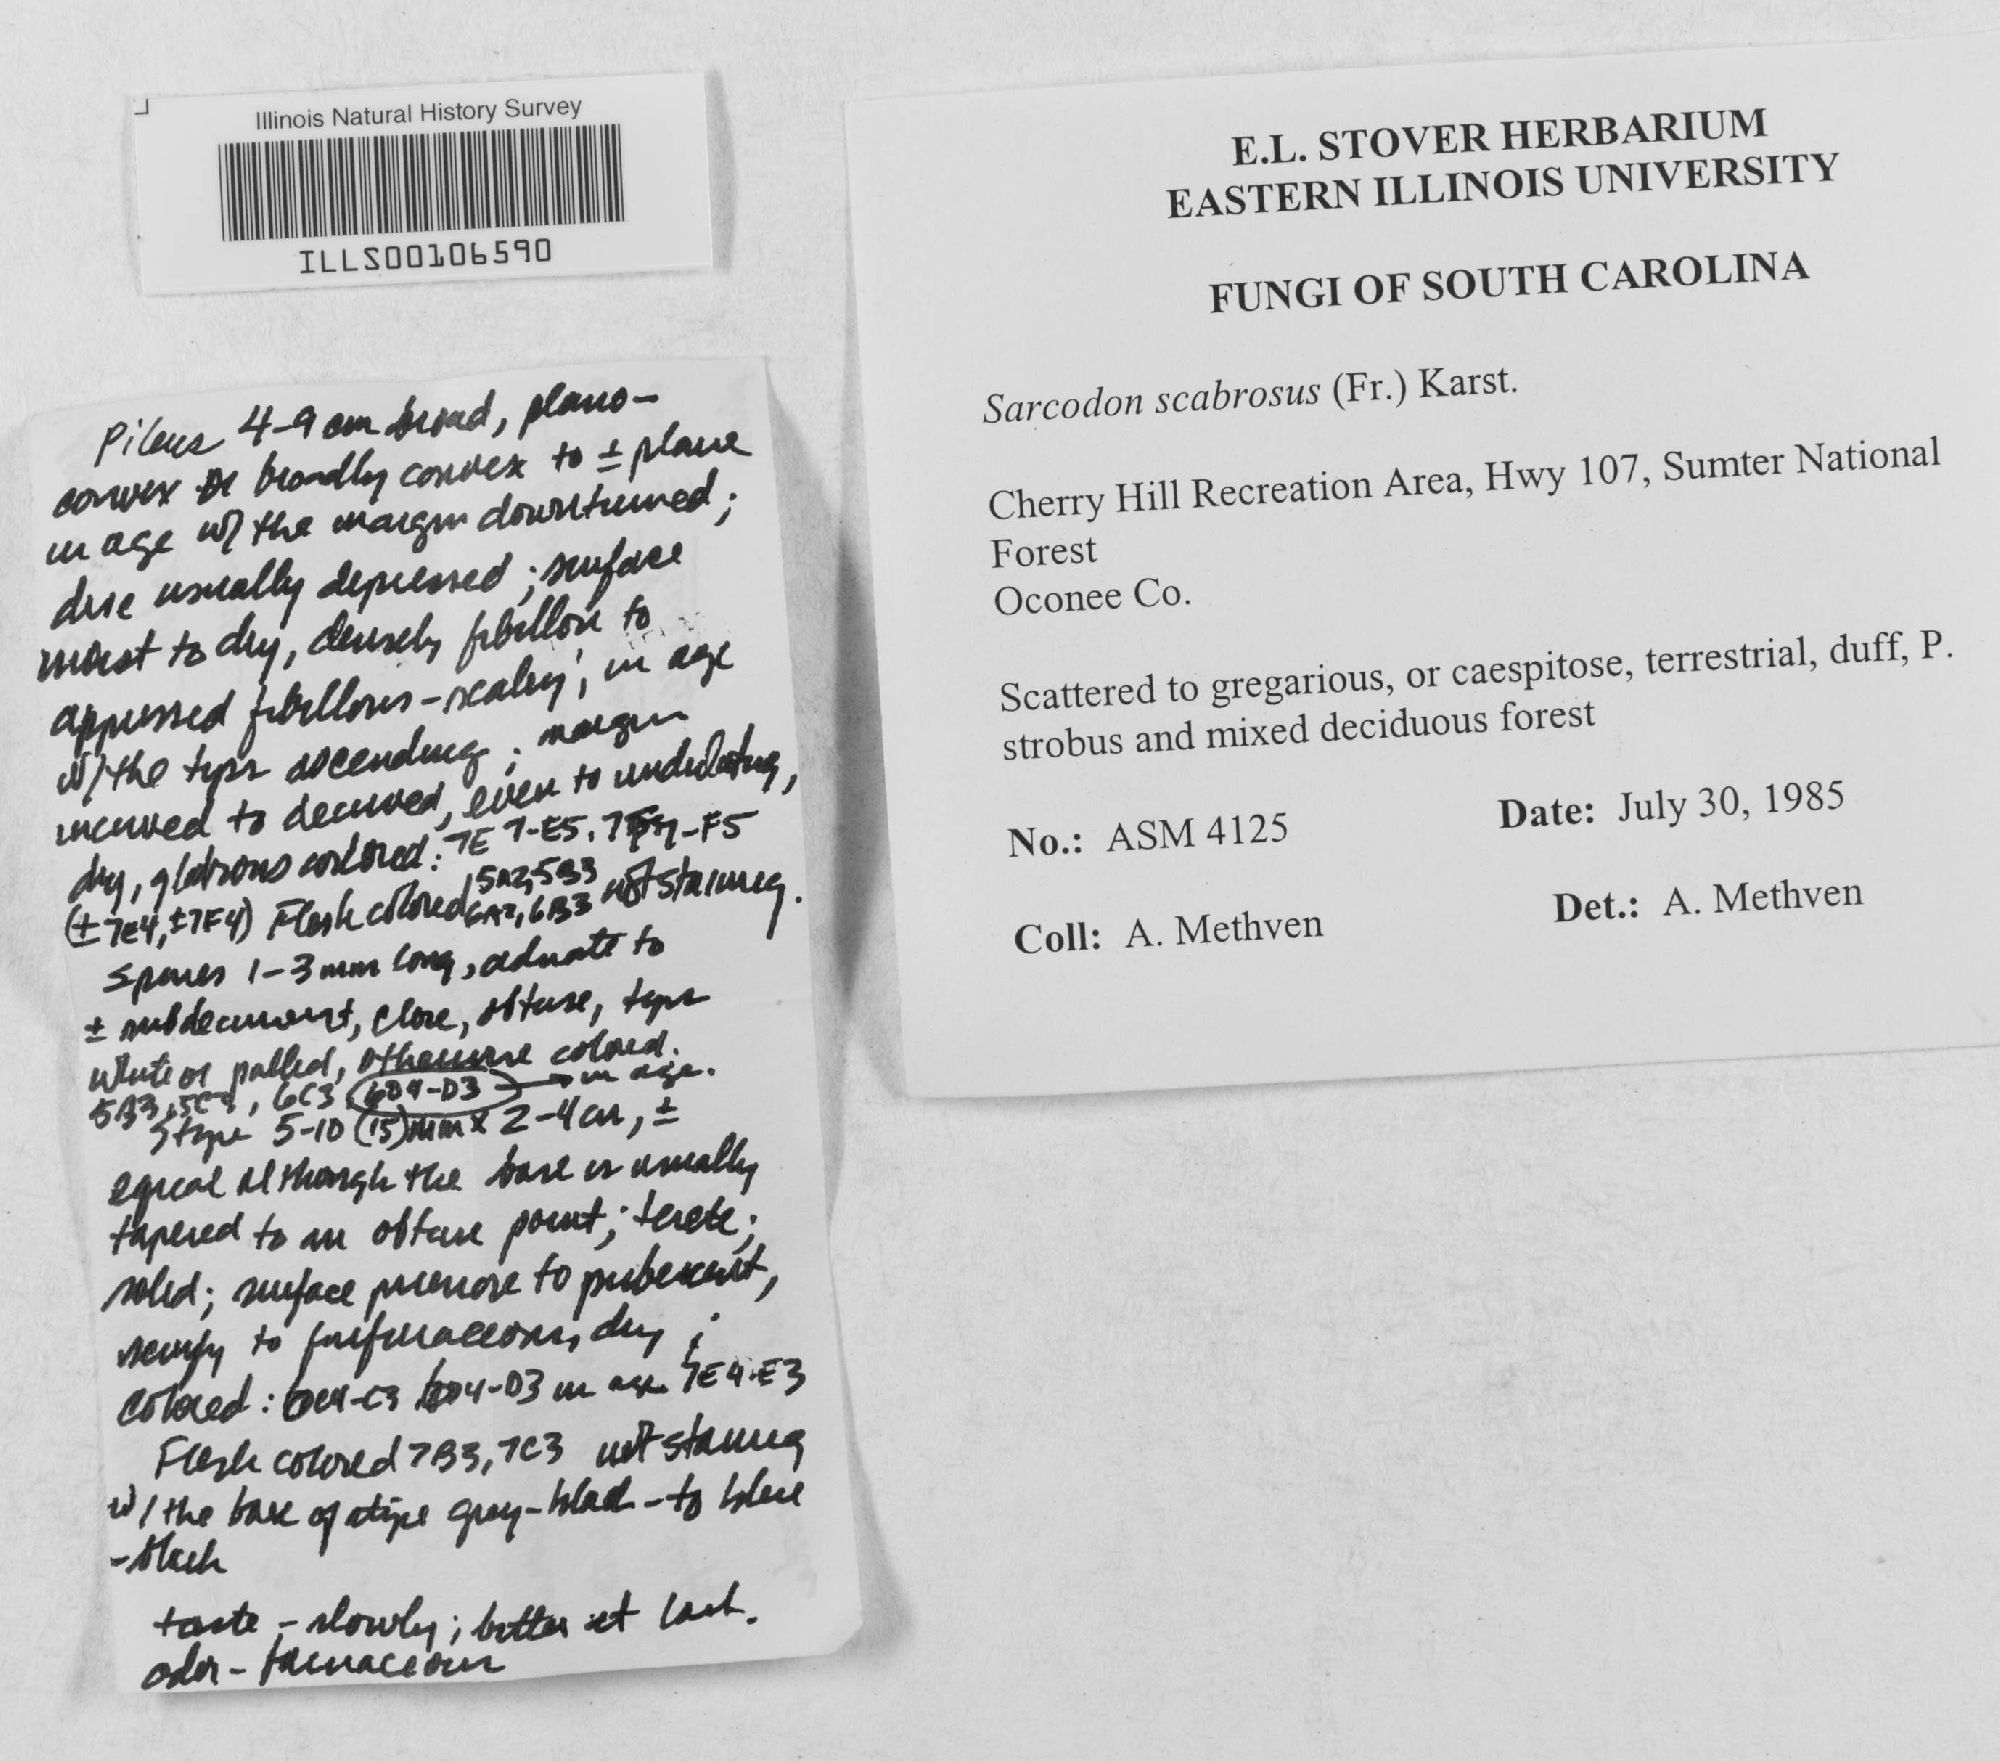 Illinois Natural History Survey
ILLS00106590
E.L. STOVER HERBARIUM
EASTERN ILLINOIS UNIVERSITY
FUNGI OF SOUTH CAROLINA
Sarcodon scabrosus (Fr.) Karst.
Cherry Hill Recreation Area, Hwy 107, Sumter National
Forest
Oconee Co.
Scattered to gregarious, or caespitose, terrestrial, duff, P.
strobus and mixed deciduous forest
No.: ASM 4125 Date: July 30, 1985
Coll: A. Methven Det.: A. Methven
Pileus 4-9 cm broad, plano-
convex or broadly convex to ± plane
in age w/ the margin downturned;
disc usually depressed; surface
moist to dry, densely fibillose to
appressed fibillous-scaley; in age
w/ the tips ascending; margin
incurved to decurved, even to undulating,
dry, glabrous colored: 7E7-E5, -F5
(± 7E4, ±7F4) Flesh colored 5A2, 5B3
6A2, 6B3 not staining.
Spines 1-3 mm long, adnate to
± subdecurrent, close, obtuse, tips
white or pallid, otherwise colored.
5B3, 5C3, 6C3, 6D4-D3 → in age.
Stipe 5-10 (15) mm x 2-4 cm, ±
equal although the base is usually
tapered to an obtuse point; terete;
solid; surface pruinose to pubescent,
scurfy to furfuraceous, dry;
colored: 6C4-C3 6D4-D3 in age 7E4-E3
Flesh colored 7B3, 7C3 not staining
w/ the base of stipe gray-black-to blue
-black
taste - slowly; bitter at last.
odor - farinaceous